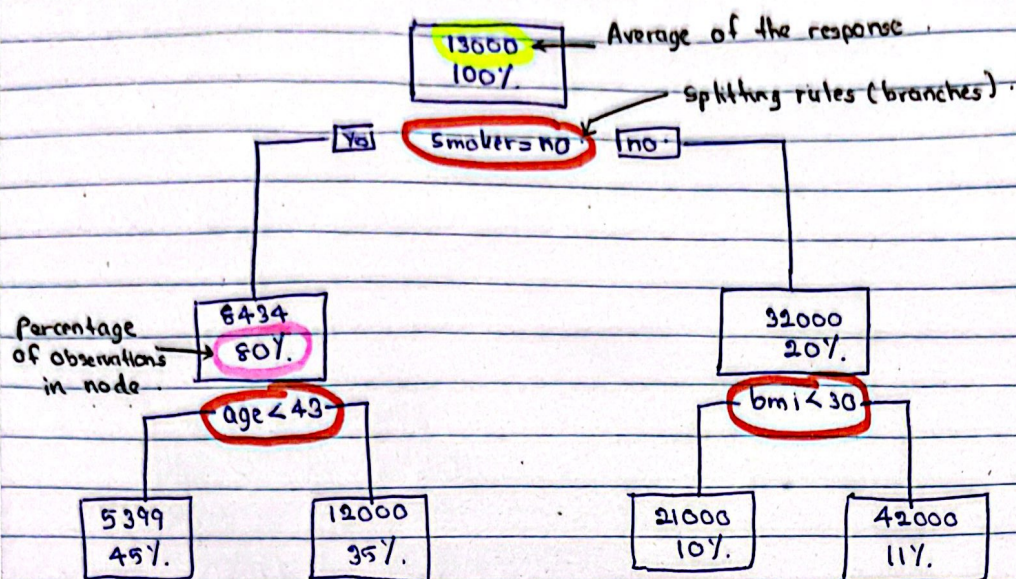 13000
100%.
Average of the response.
Splitting rules (branches).
Yes
smoker = no
no.
8434
80%.
Percentage
of observations
in node.
32000
20%.
age < 43
bmi < 30
5399
45%.
12000
35%.
21000
10%.
42000
11%.